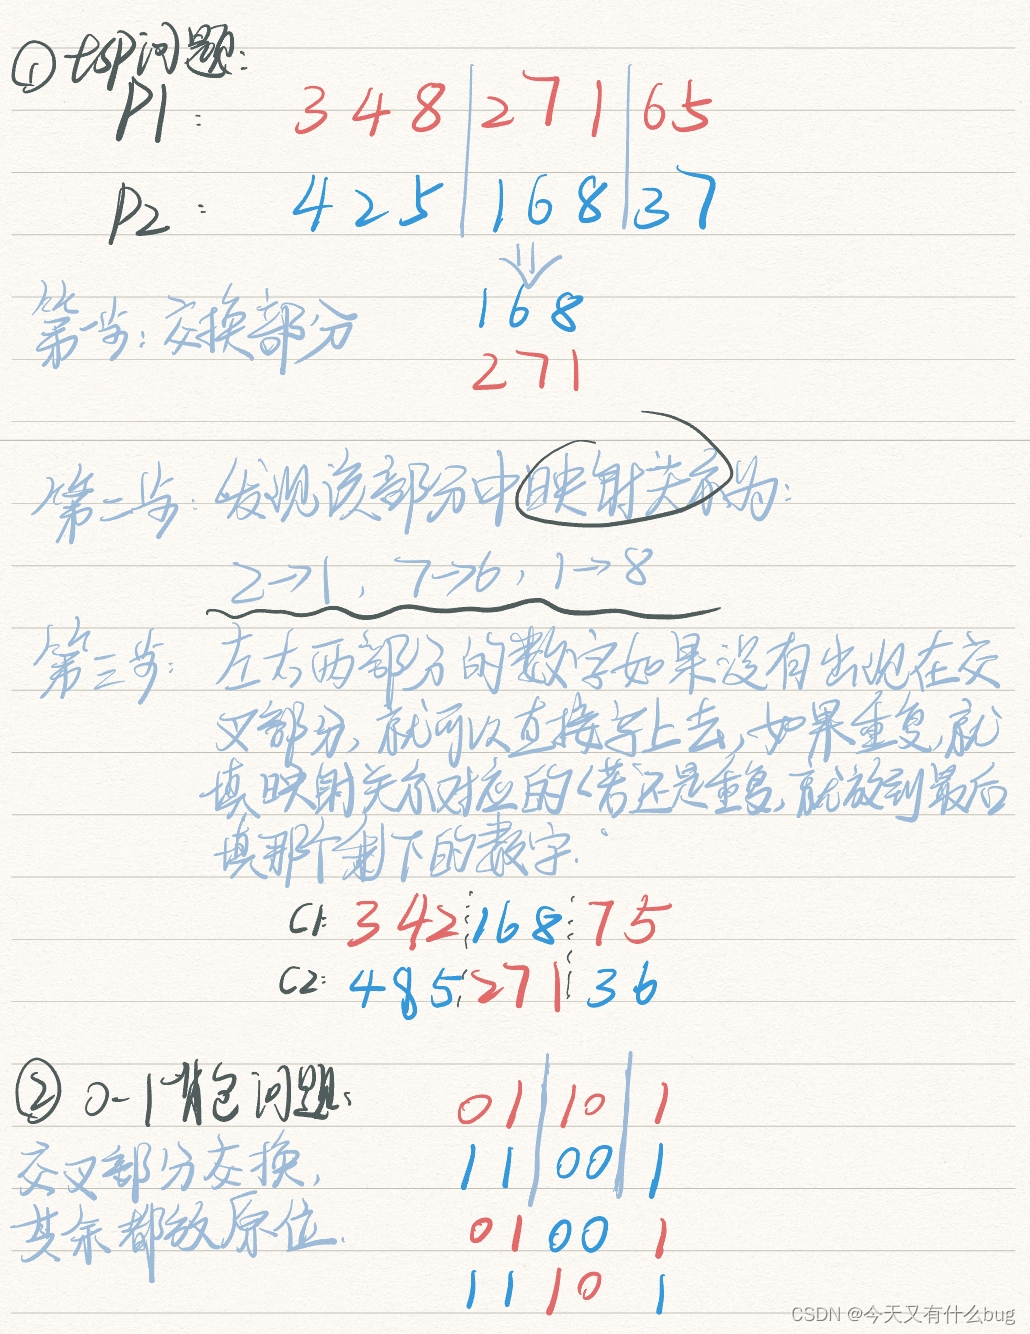 ① tsp问题:
P1: 3 4 8 2 7 1 6 5
P2: 4 2 5 1 6 8 3 7
第一步: 交换部分
1 6 8
2 7 1
第二步: 发现该部分中映射关系为:
2→1, 7→6, 1→8
第三步: 左右两部分的数字如果没有出现在交
叉部分, 就可以直接写上去, 如果重复, 就
填映射关系对应的(若还是重复, 就放到最后
填那个剩下的数字.
C1: 3 4 2 1 6 8 7 5
C2: 4 8 5 2 7 1 3 6
② 0-1背包问题:
0 1 1 0 1
1 1 0 0 1
交叉部分交换,
其余都放原位.
0 1 0 0 1
1 1 1 0 1
CSDN @今天又有什么bug